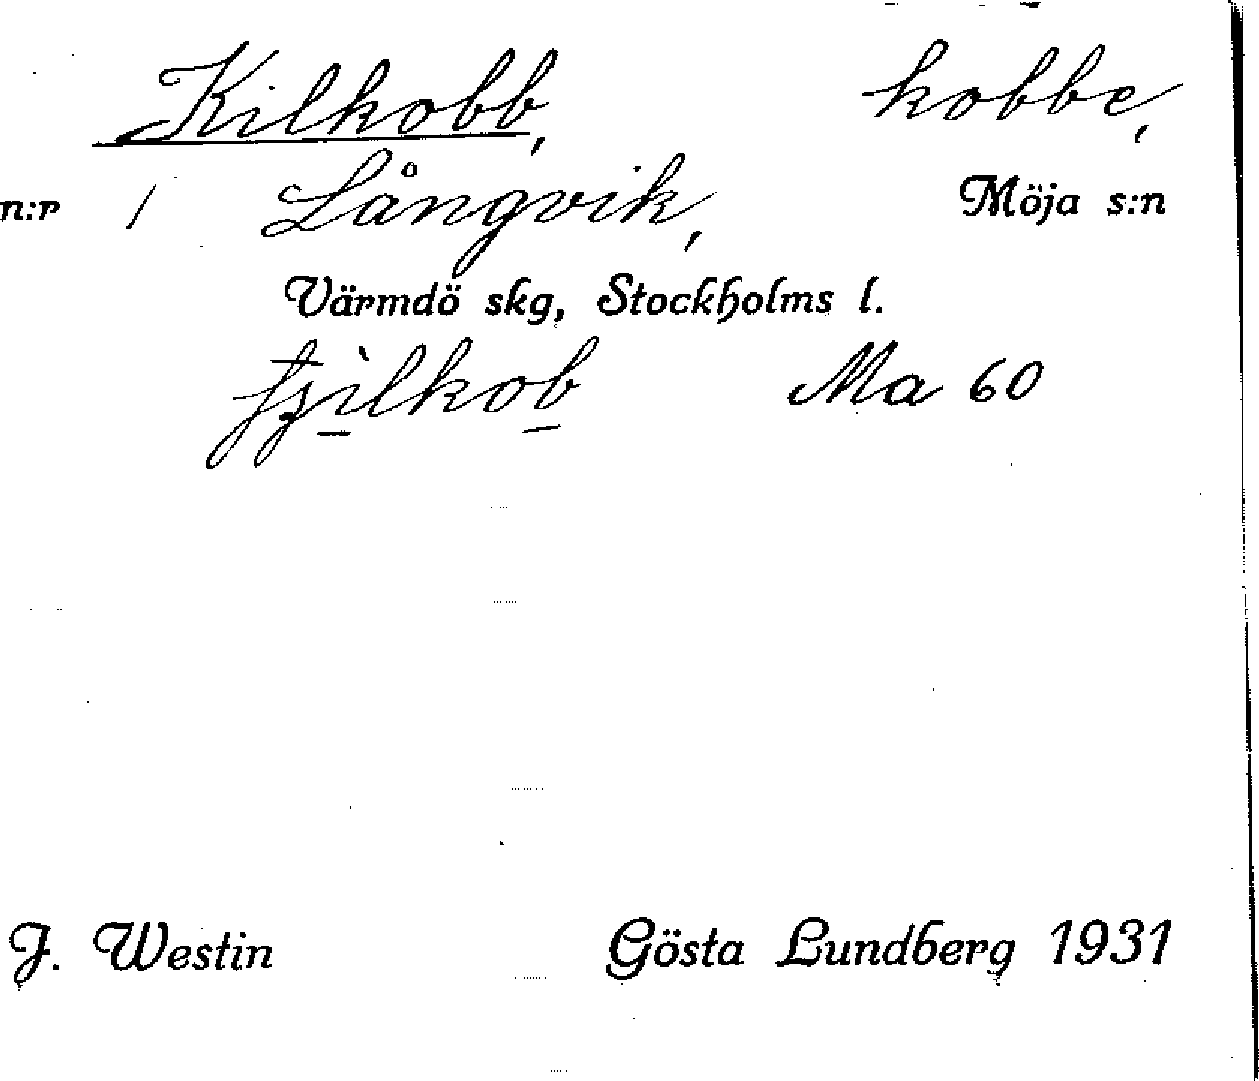 Kilkobb, kobbe,
n:r 1 Långvik, Möja s:n
Värmdö skg, Stockholms l.
Ma 60
J. Westin Gösta Lundberg 1931